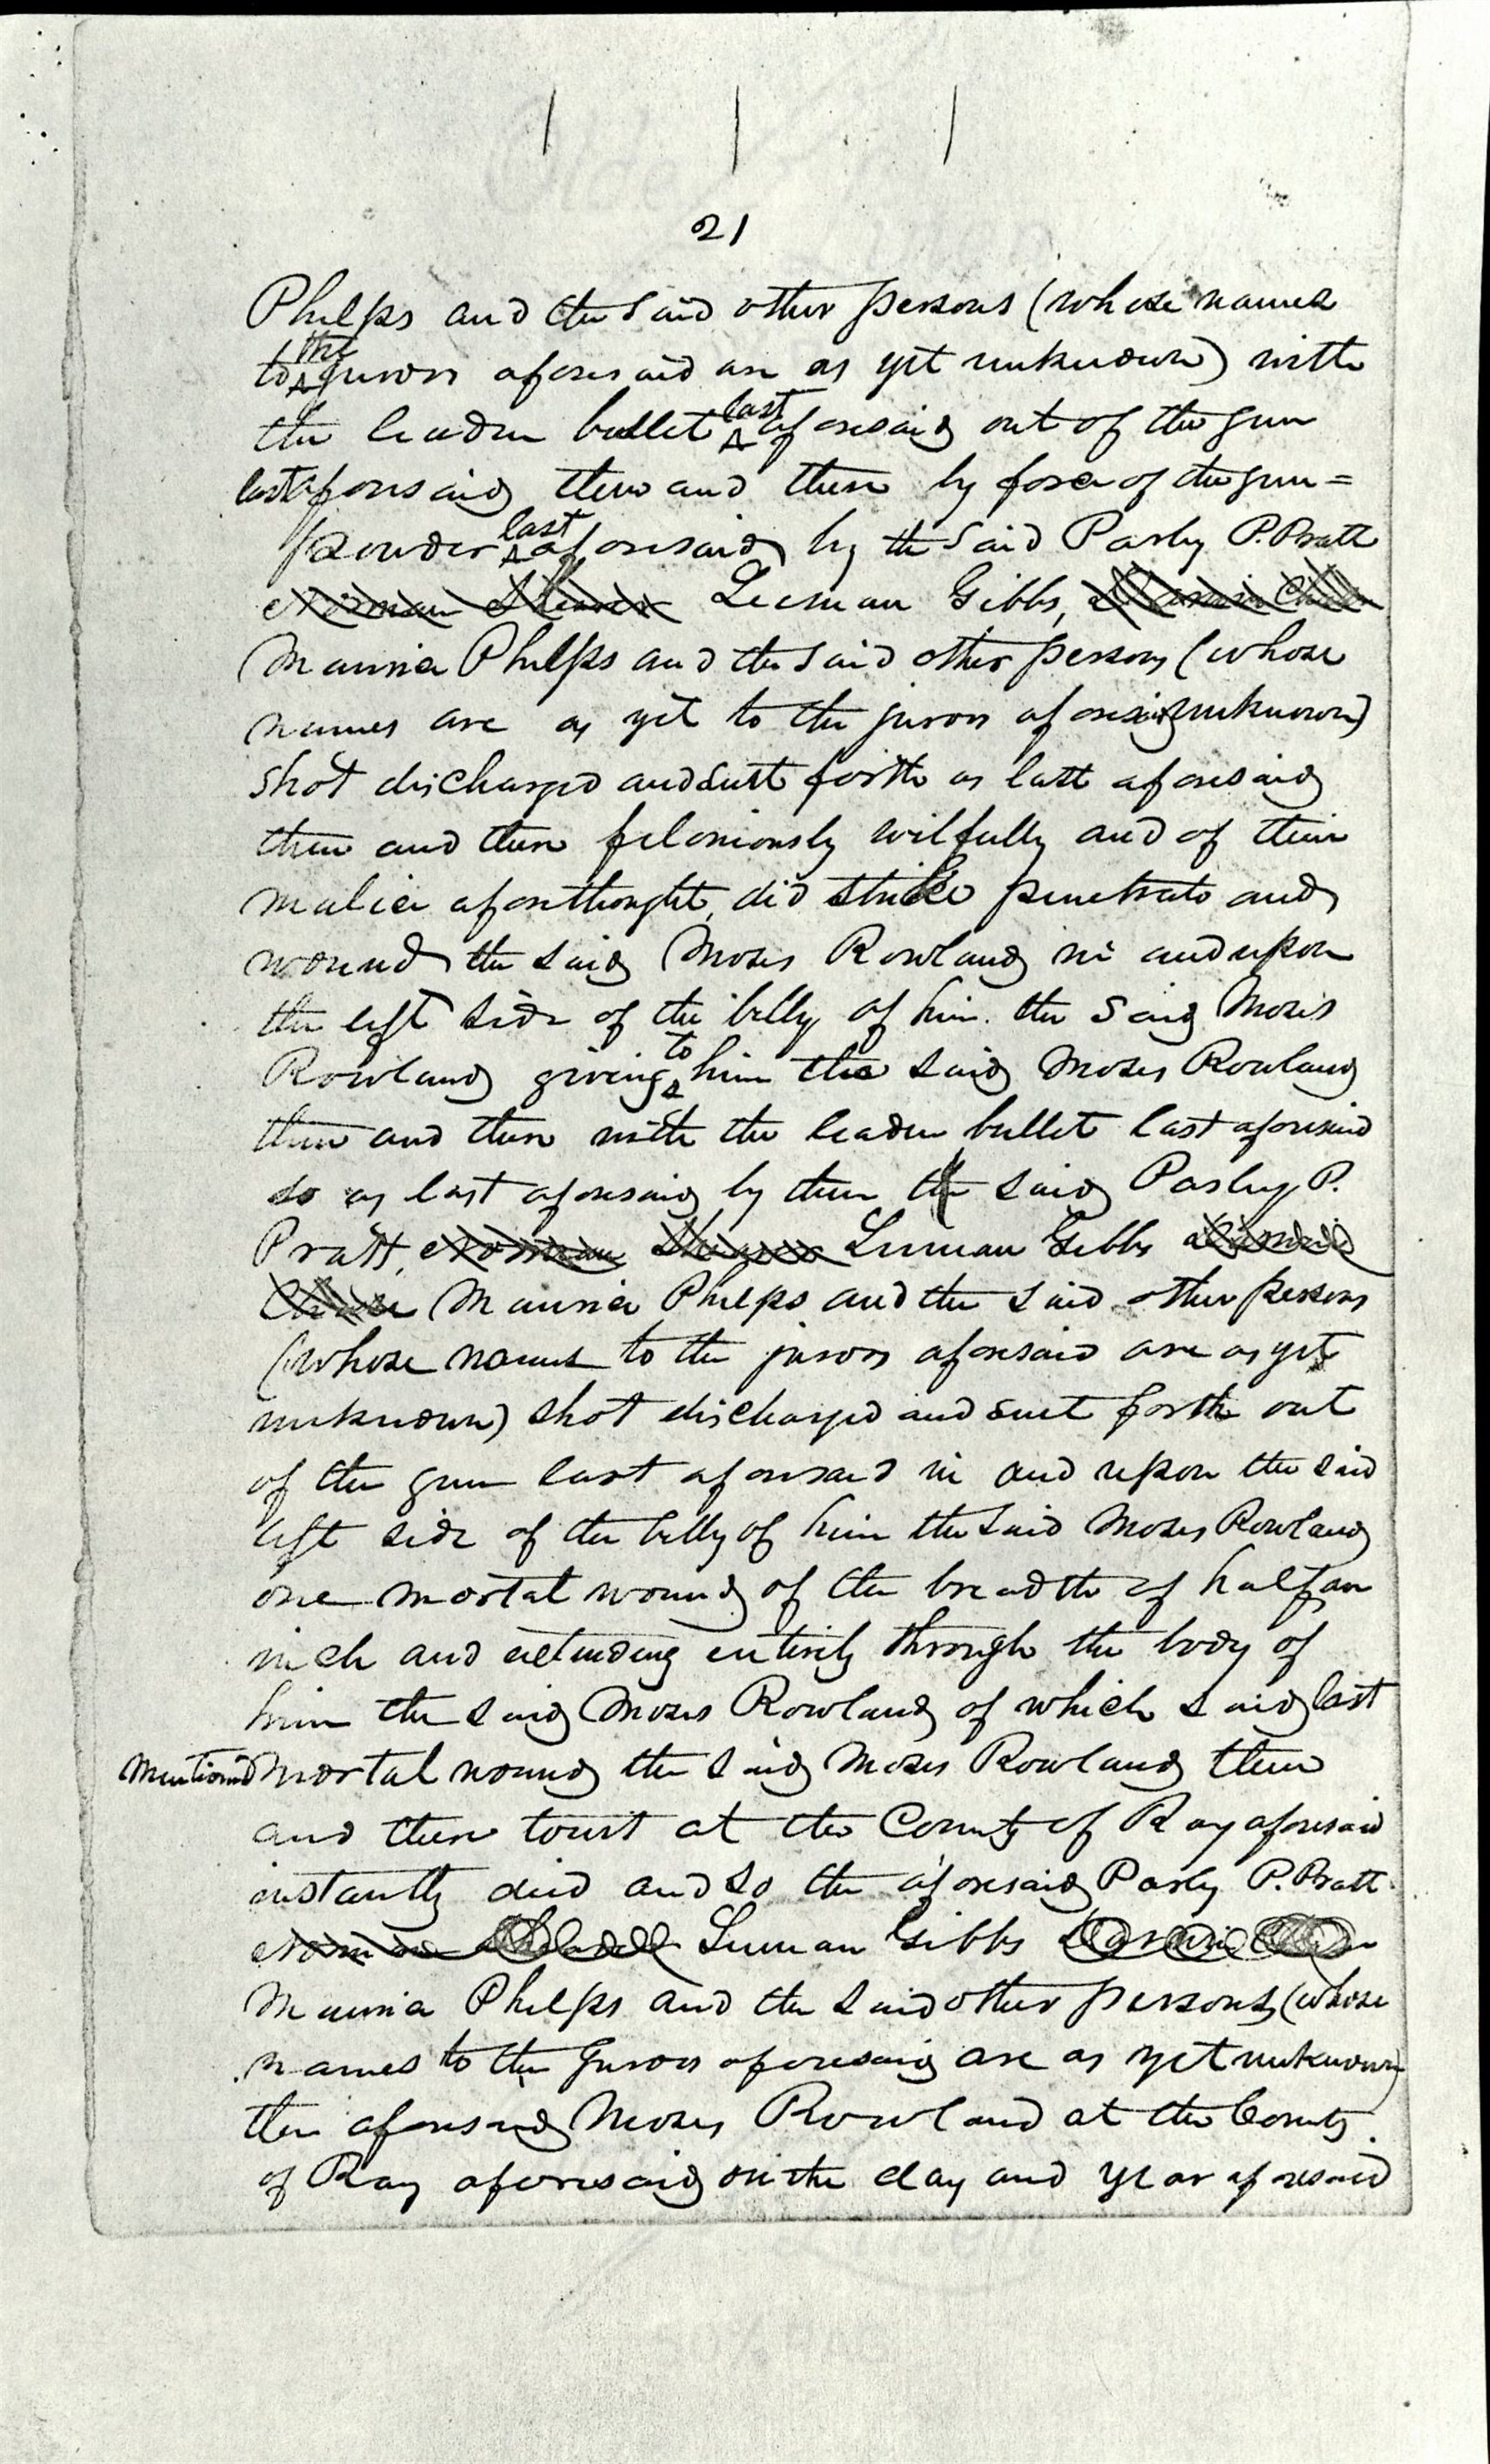 21
Phelps and the said other persons (whose names
to the jurors aforesaid are as yet unknown) with
the leaden bullet last aforesaid out of the gun
last aforesaid then and there by force of the gun=
powder last aforesaid by the said Parly P. Pratt
Norman Shearer Luman Gibbs, Darwin Chase
Maurice Phelps and the said other persons (whose
names are as yet to the jurors aforesaid unknown)
shot discharged and sent forth as last aforesaid
then and there feloniously wilfully and of their
malice aforethought, did strike penetrate and
wound the said Moses Rowland in and upon
the left side of the belly of him the said Moses
Rowland giving to him the said Moses Rowland
then and there with the leaden bullet last aforesaid
so as last aforesaid by them the said Parly P.
Pratt, Norman Shearer Luman Gibbs Darwin
Chase Maurice Phelps and the said other persons
(whose names to the jurors aforesaid are as yet
unknown) shot discharged and sent forth out
of the gun last aforesaid in and upon the said
left side of the belly of him the said Moses Rowland
one mortal wound of the breadth of half an
inch and extending entirely through the body of
him the said Moses Rowland of which said last
mentioned mortal wound the said Moses Rowland then
and there towit at the County of Ray aforesaid
instantly died and so the aforesaid Parly P. Pratt
Norman Luman Gibbs Darwin
Maurice Phelps and the said other persons (whose
names to the Jurors aforesaid are as yet unknown)
the aforesaid Moses Rowland at the County
of Ray aforesaid on the day and year aforesaid